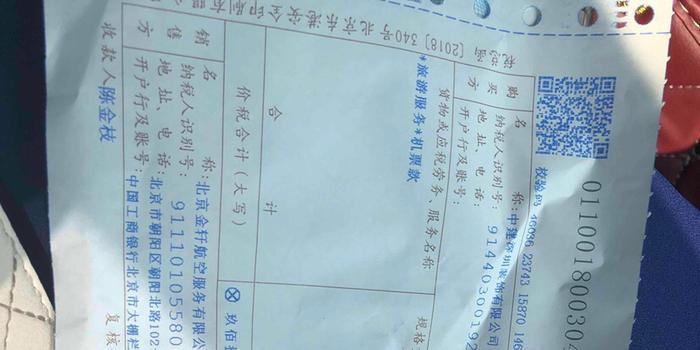 011001800304
校验码 46036 23743 15870 146
税总函〔2018〕340号北京
购买方
名 称:中建深圳装饰有限公司
纳税人识别号:9144030019
地址、电话:
开户行及账号:
货物或应税劳务、服务名称
规格
*旅游服务*机票款
合 计
价税合计(大写)
ⓧ 玖佰
销售方
名 称:北京金轩航空服务有限公
纳税人识别号:91110105580
地址、电话:北京市朝阳区朝阳北路102
开户行及账号:中国工商银行北京市大栅栏
收款人陈金枝
复核